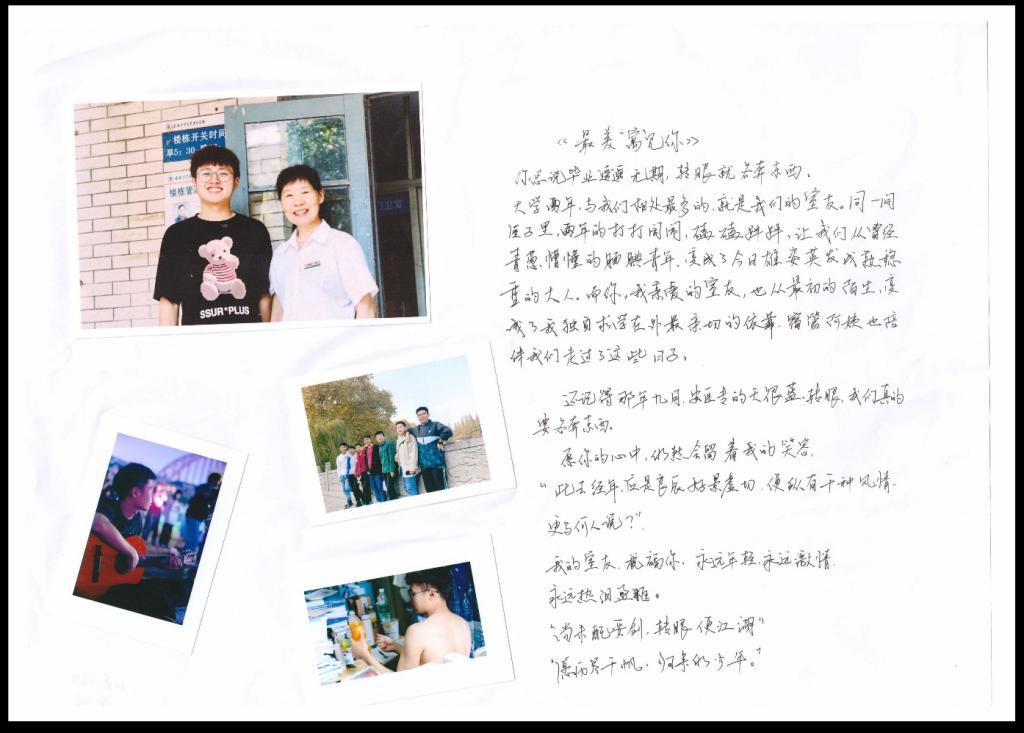 楼栋开关时间
早5:30
楼栋管
SSUR*PLUS
《最美"寓见你》
你总说毕业遥遥无期,转眼就各奔东西。
大学两年,与我们相处最多的,就是我们的室友。同一间
屋子里,两年的打打闹闹,磕磕绊绊,让我们从曾经
青葱懵懂的腼腆青年,变成了今日雄姿英发成熟稳
重的大人。而你,我亲爱的室友,也从最初的陌生,变
成了我独自求学在外最亲切的依靠,宿管阿姨也陪
伴我们走过了这些日子。
还记得那年九月,安医专的天很蓝,转眼,我们真的
要各奔东西。
愿你的心中,仍然会留着我的笑容。
"此去经年,应是良辰好景虚切,便纵有千种风情,
更与何人说?"
我的室友,祝福你,永远年轻,永远激情,
永远热泪盈眶。
"尚未配妥剑,转眼便江湖"
"愿历尽千帆,归来仍少年。"